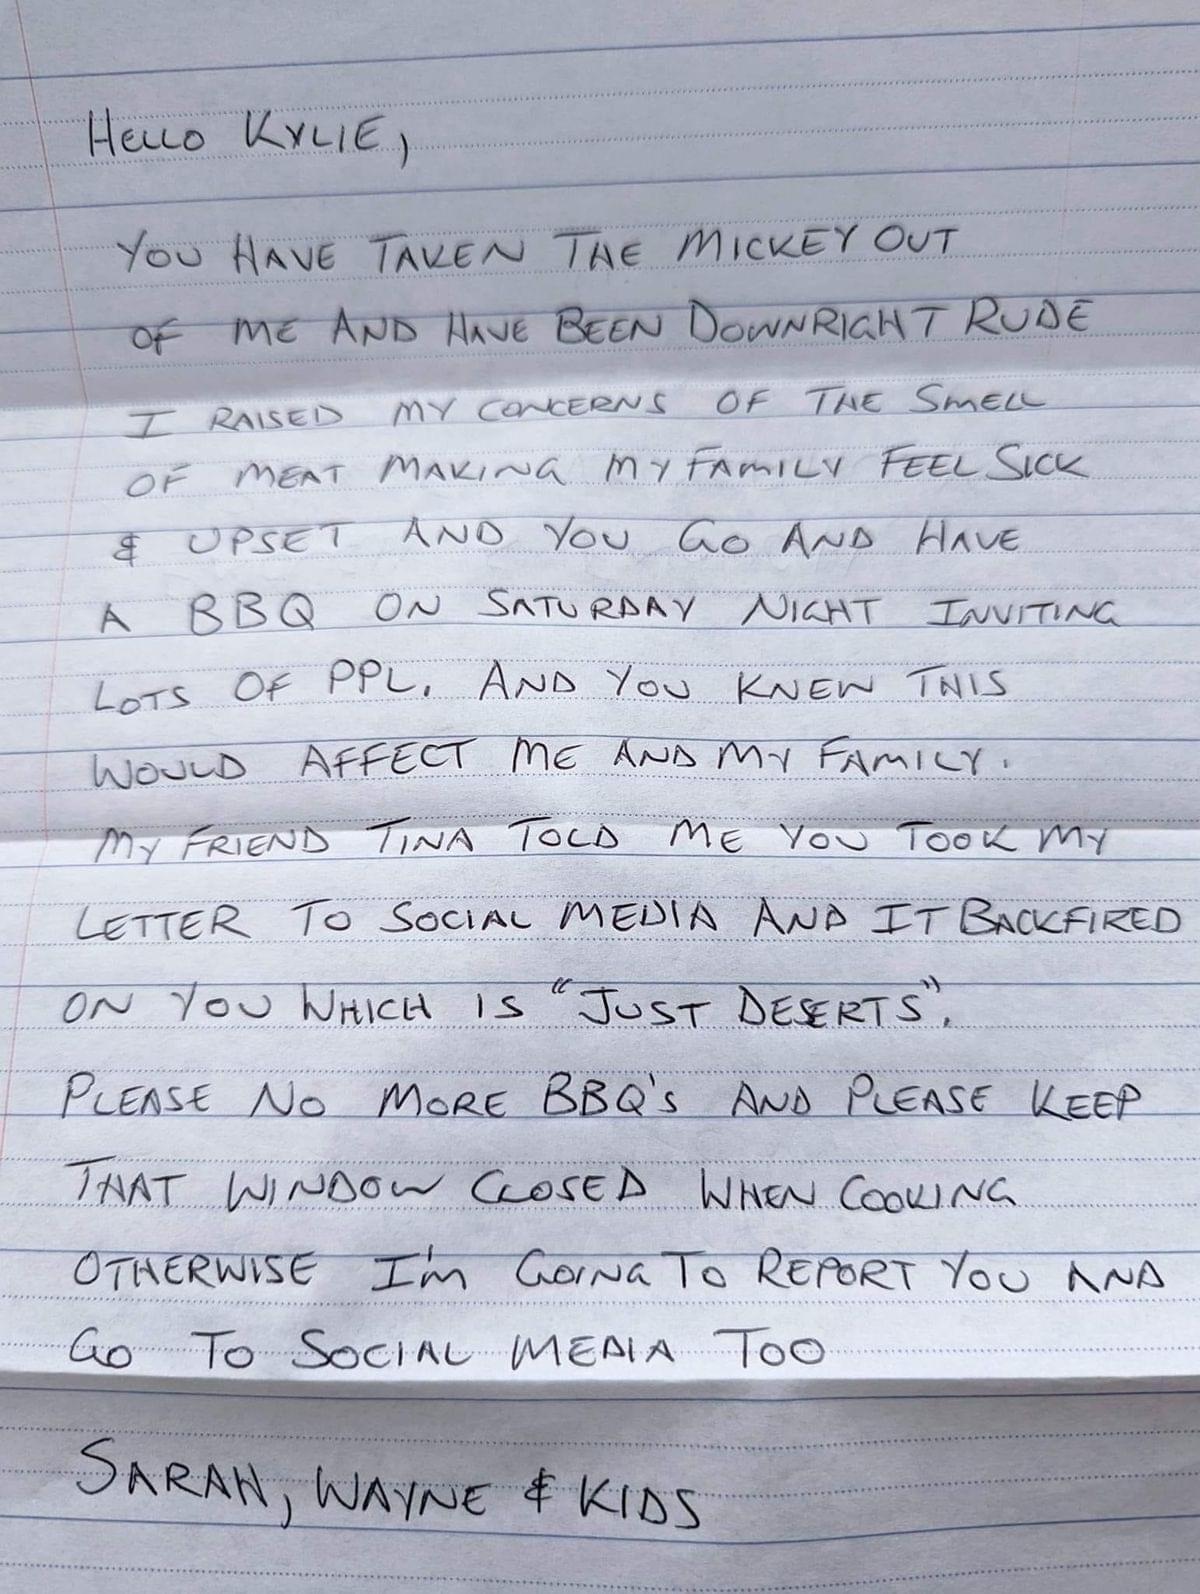 Hello Kylie,
You have taken the mickey out
of me and have been downright rude
I raised my concerns of the smell
of meat making my family feel sick
& upset and you go and have
a BBQ on Saturday night inviting
lots of ppl. And you knew this
would affect me and my family.
My friend Tina told me you took my
letter to social media and it backfired
on you which is "Just Deserts".
Please no more BBQ's and please keep
that window closed when cooking
otherwise I'm going to report you and
go to social media too
Sarah, Wayne & Kids